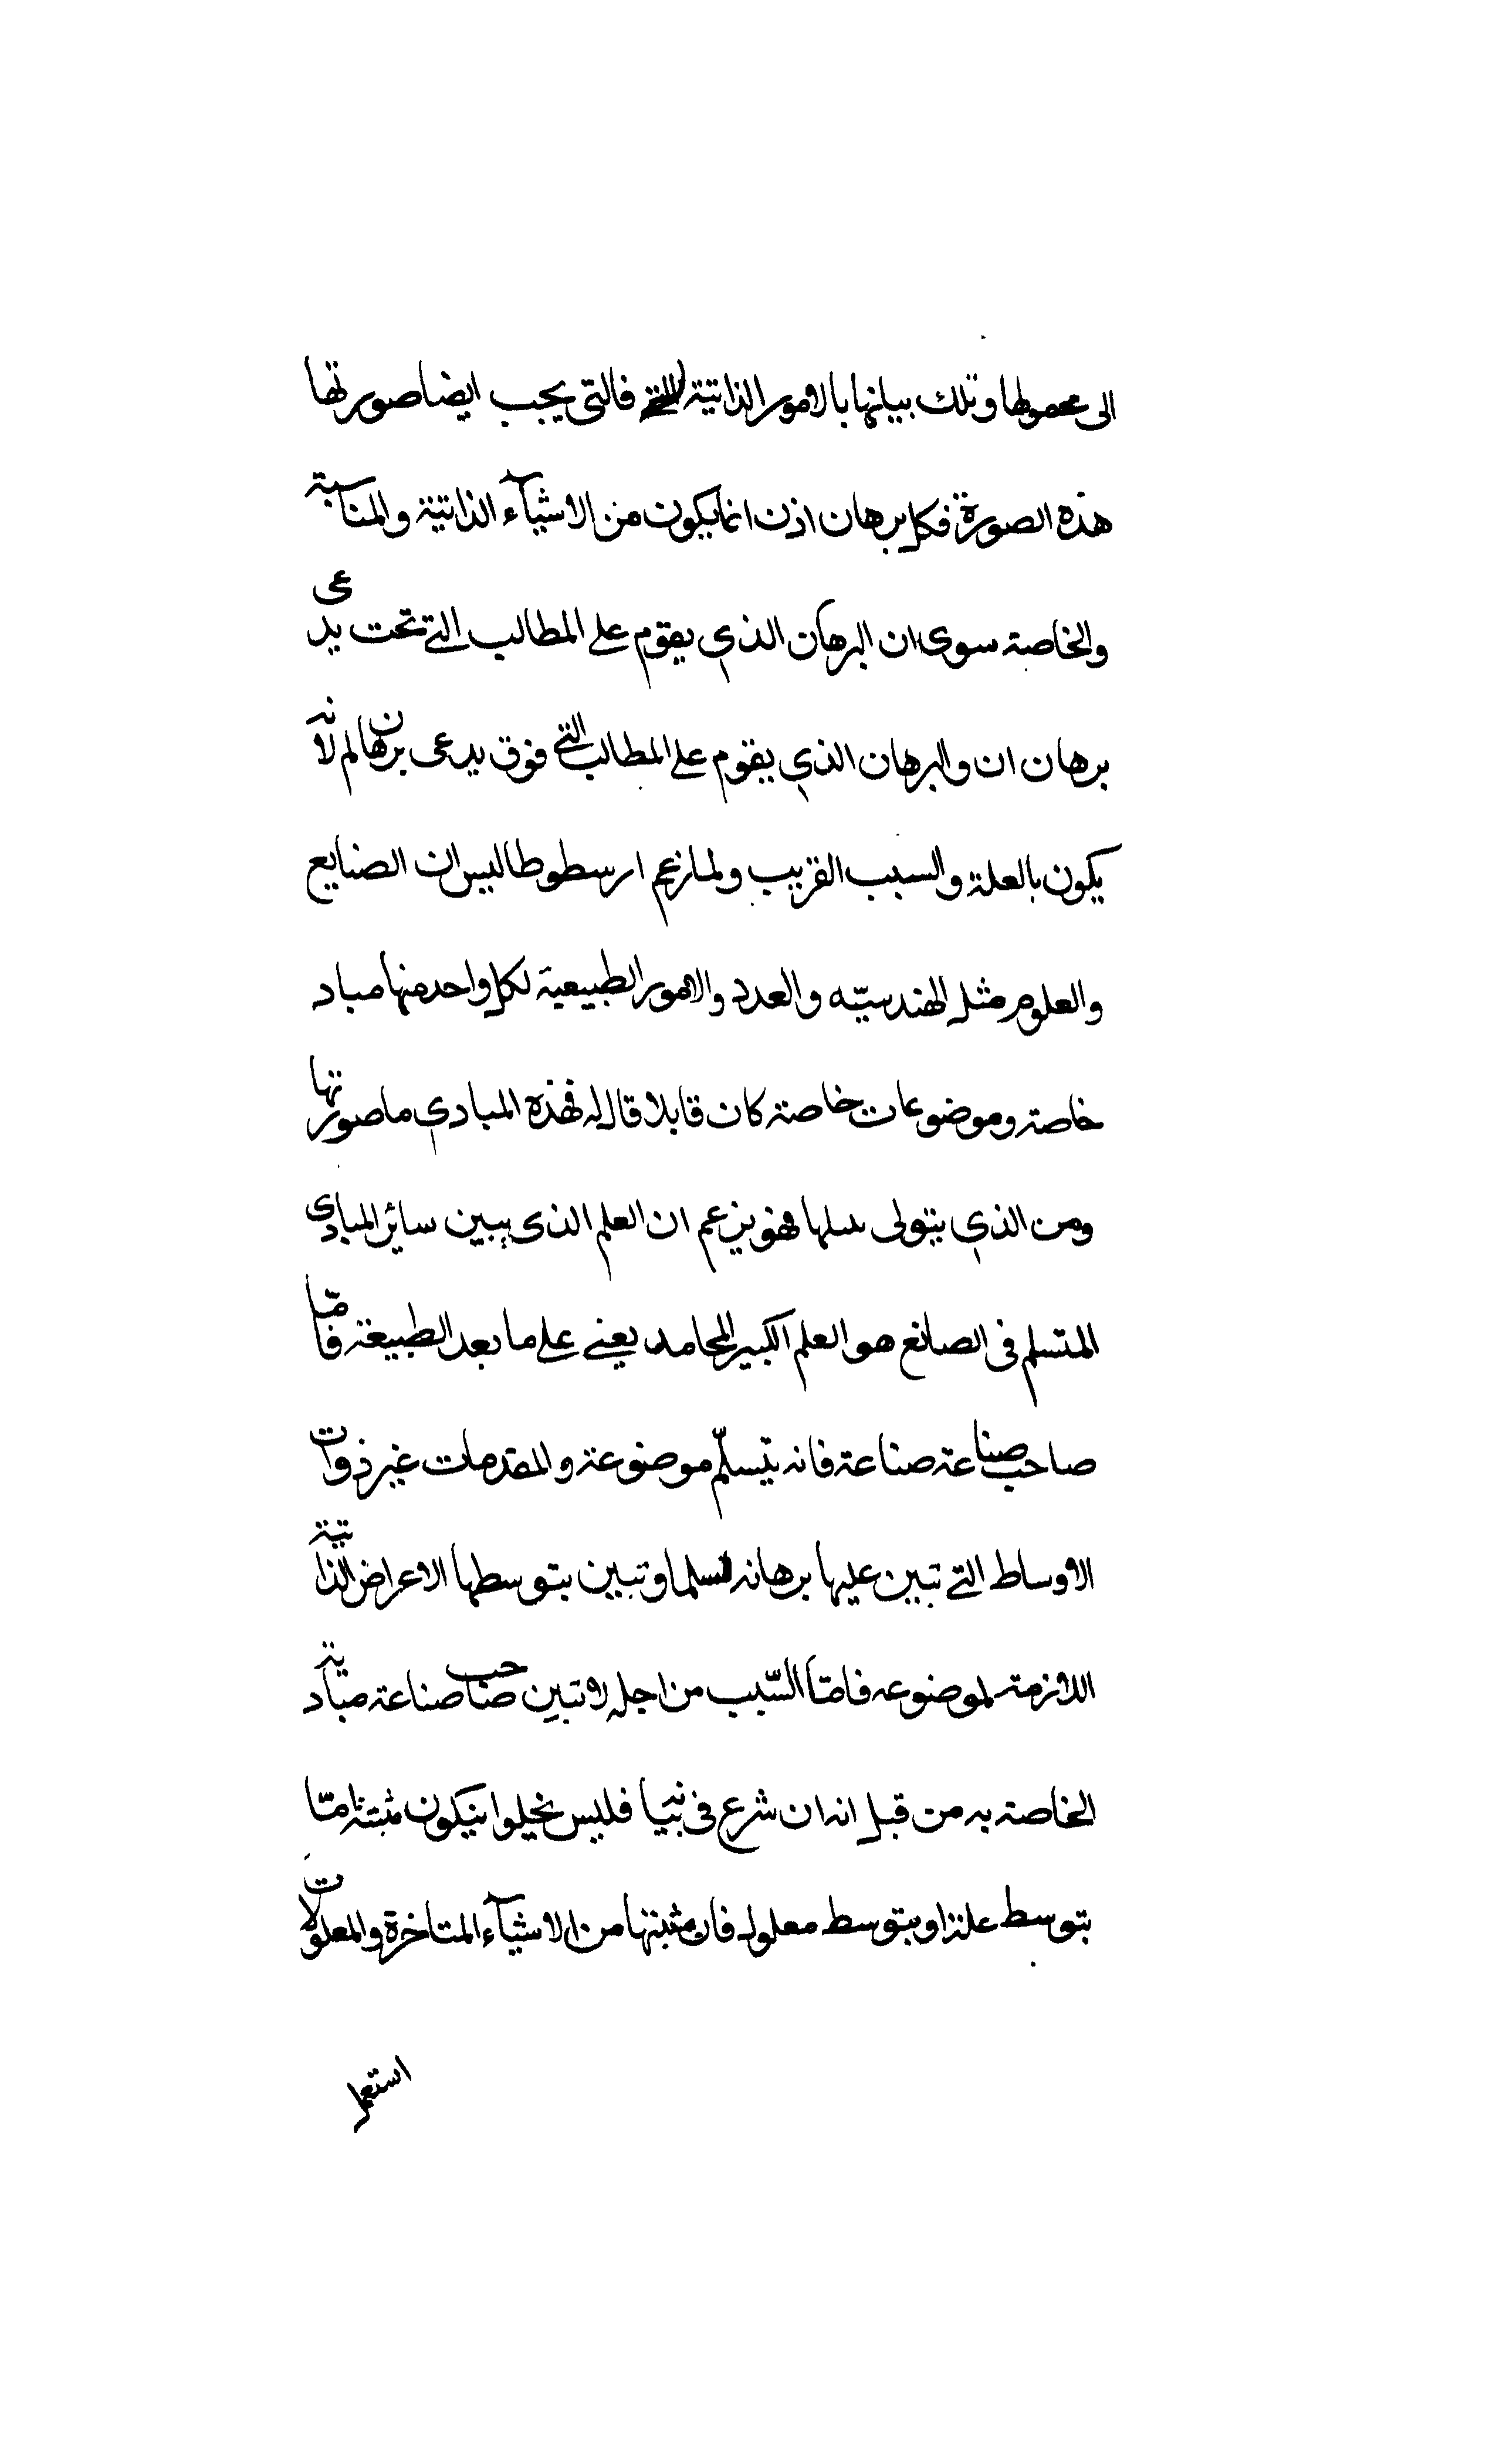 الى محمولها وتلك بيانها بالامور الذاتية فالتى يجب ايضا صورتها
هذه الصورة فكل برهان اذن انما يكون من الاشيآء الذاتية والمناسبة
والخاصة سوى ان البرهان الذي يقوم على المطالب التى تحت يدعى
برهان ان والبرهان الذي يقوم على المطالب التى فوق يدعى برهان لم لانه
يكون بالعلة والسبب القريب ولما زعم ارسطوطاليس ان الصنايع
والعلوم مثل الهندسيّه والعدد والامور الطبيعية لكل واحد منها مباد
خاصة وموضوعات خاصة كان قايلا قال له فهذه المبادي ما صورتها
ومن الذي يتولى فهو يزعم ان العلم الذى يبين ساير المبادى
المتسلم فى الصانع هو العلم الكبير يعنى على ما بعد الطبيعة فامّا
صاحب صناعة صناعة فانه يتسلّم موضوعة والمقدمات غير ذوات
الاوساط التى تبين عليها برهانه تسلما وتبين بتوسطها الاعراض الذاتية
اللازمة لموضوعه فامّا السّبب من اجله لا تبين صاحب صناعة مباديه
الخاصة به من قبل انه ان شرع فى فليس يخلوا يكون امّا
بتوسط علتها او بتوسط معلول فان مثبتها من الاشيآء المتاخرة والمعلولات
استعمل